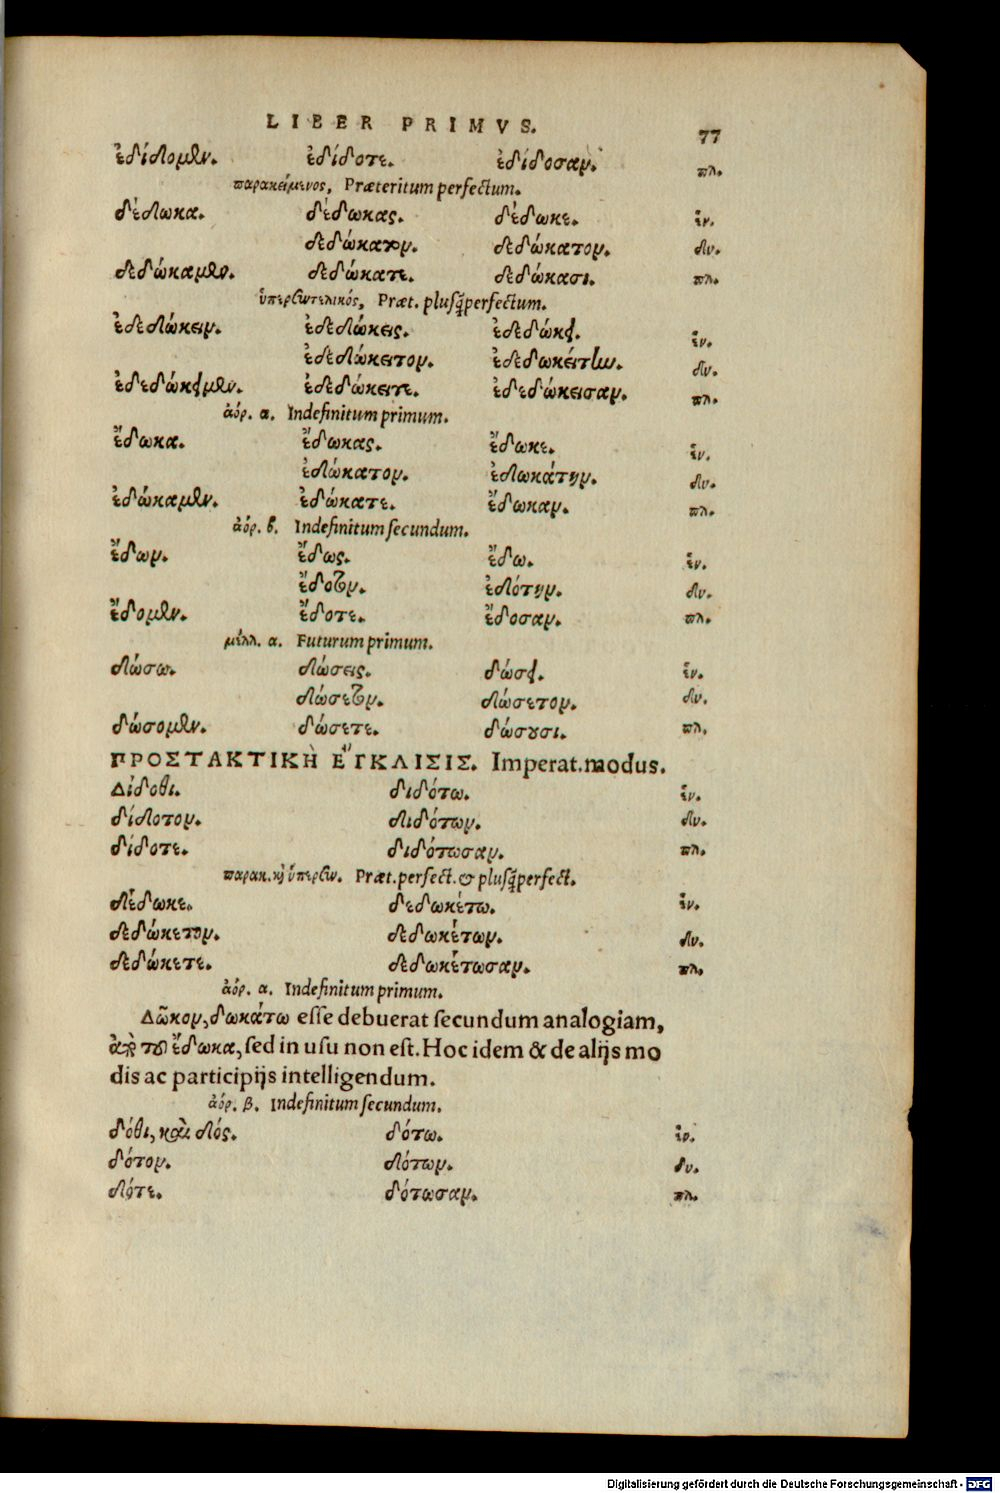 LIBER PRIMVS. 77
ἐδίδομεν. ἐδίδοτε. ἐδίδοσαν. πλ.
παρακείμενος, Præteritum perfectum.
δέδωκα. δέδωκας. δέδωκε. ἑν.
δεδώκατον. δεδώκατον. δυ.
δεδώκαμεν. δεδώκατε. δεδώκασι. πλ.
ὑπερσυντελικός, Præt. plusq̃perfectum.
ἐδεδώκειν. ἐδεδώκεις. ἐδεδώκει. ἑν.
ἐδεδώκειτον. ἐδεδωκείτην. δυ.
ἐδεδώκειμεν. ἐδεδώκειτε. ἐδεδώκεισαν. πλ.
ἀόρ. α. Indefinitum primum.
ἔδωκα. ἔδωκας. ἔδωκε. ἑν.
ἐδώκατον. ἐδωκάτην. δυ.
ἐδώκαμεν. ἐδώκατε. ἔδωκαν. πλ.
ἀόρ. β. Indefinitum secundum.
ἔδων. ἔδως. ἔδω. ἑν.
ἔδοτον. ἐδότην. δυ.
ἔδομεν. ἔδοτε. ἔδοσαν. πλ.
μέλλ. α. Futurum primum.
δώσω. δώσεις. δώσει. ἑν.
δώσετον. δώσετον. δυ.
δώσομεν. δώσετε. δώσουσι. πλ.
ΠΡΟΣΤΑΚΤΙΚῊ ἜΓΚΛΙΣΙΣ. Imperat. modus.
Δίδοθι. διδότω. ἑν.
δίδοτον. διδότων. δυ.
δίδοτε. διδότωσαν. πλ.
παρακ. καὶ ὑπερσυν. Præt. perfect. & plusq̃perfect.
δέδωκε. δεδωκέτω. ἑν.
δεδώκετον. δεδωκέτων. δυ.
δεδώκετε. δεδωκέτωσαν. πλ.
ἀόρ. α. Indefinitum primum.
Δῶκον, δωκάτω esse debuerat secundum analogiam,
ἀπὸ τοῦ ἔδωκα, sed in usu non est. Hoc idem & de alijs mo
dis ac participijs intelligendum.
ἀόρ. β. Indefinitum secundum.
δόθι, καὶ δός. δότω. ἑν.
δότον. δότων. δυ.
δότε. δότωσαν. πλ.
Digitalisierung gefördert durch die Deutsche Forschungsgemeinschaft - DFG